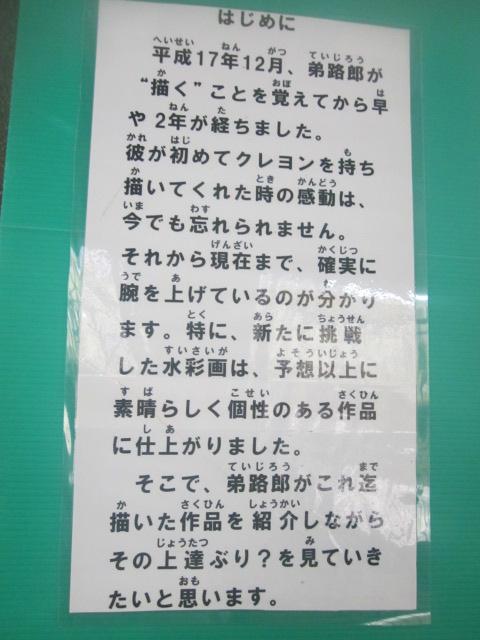 はじめに
平成17年12月、弟路郎が
“描く”ことを覚えてから早
や2年が経ちました。
彼が初めてクレヨンを持ち
描いてくれた時の感動は、
今でも忘れられません。
それから現在まで、確実に
腕を上げているのが分かり
ます。特に、新たに挑戦
した水彩画は、予想以上に
素晴らしく個性のある作品
に仕上がりました。
そこで、弟路郎がこれ迄
描いた作品を紹介しながら
その上達ぶり？を見ていき
たいと思います。